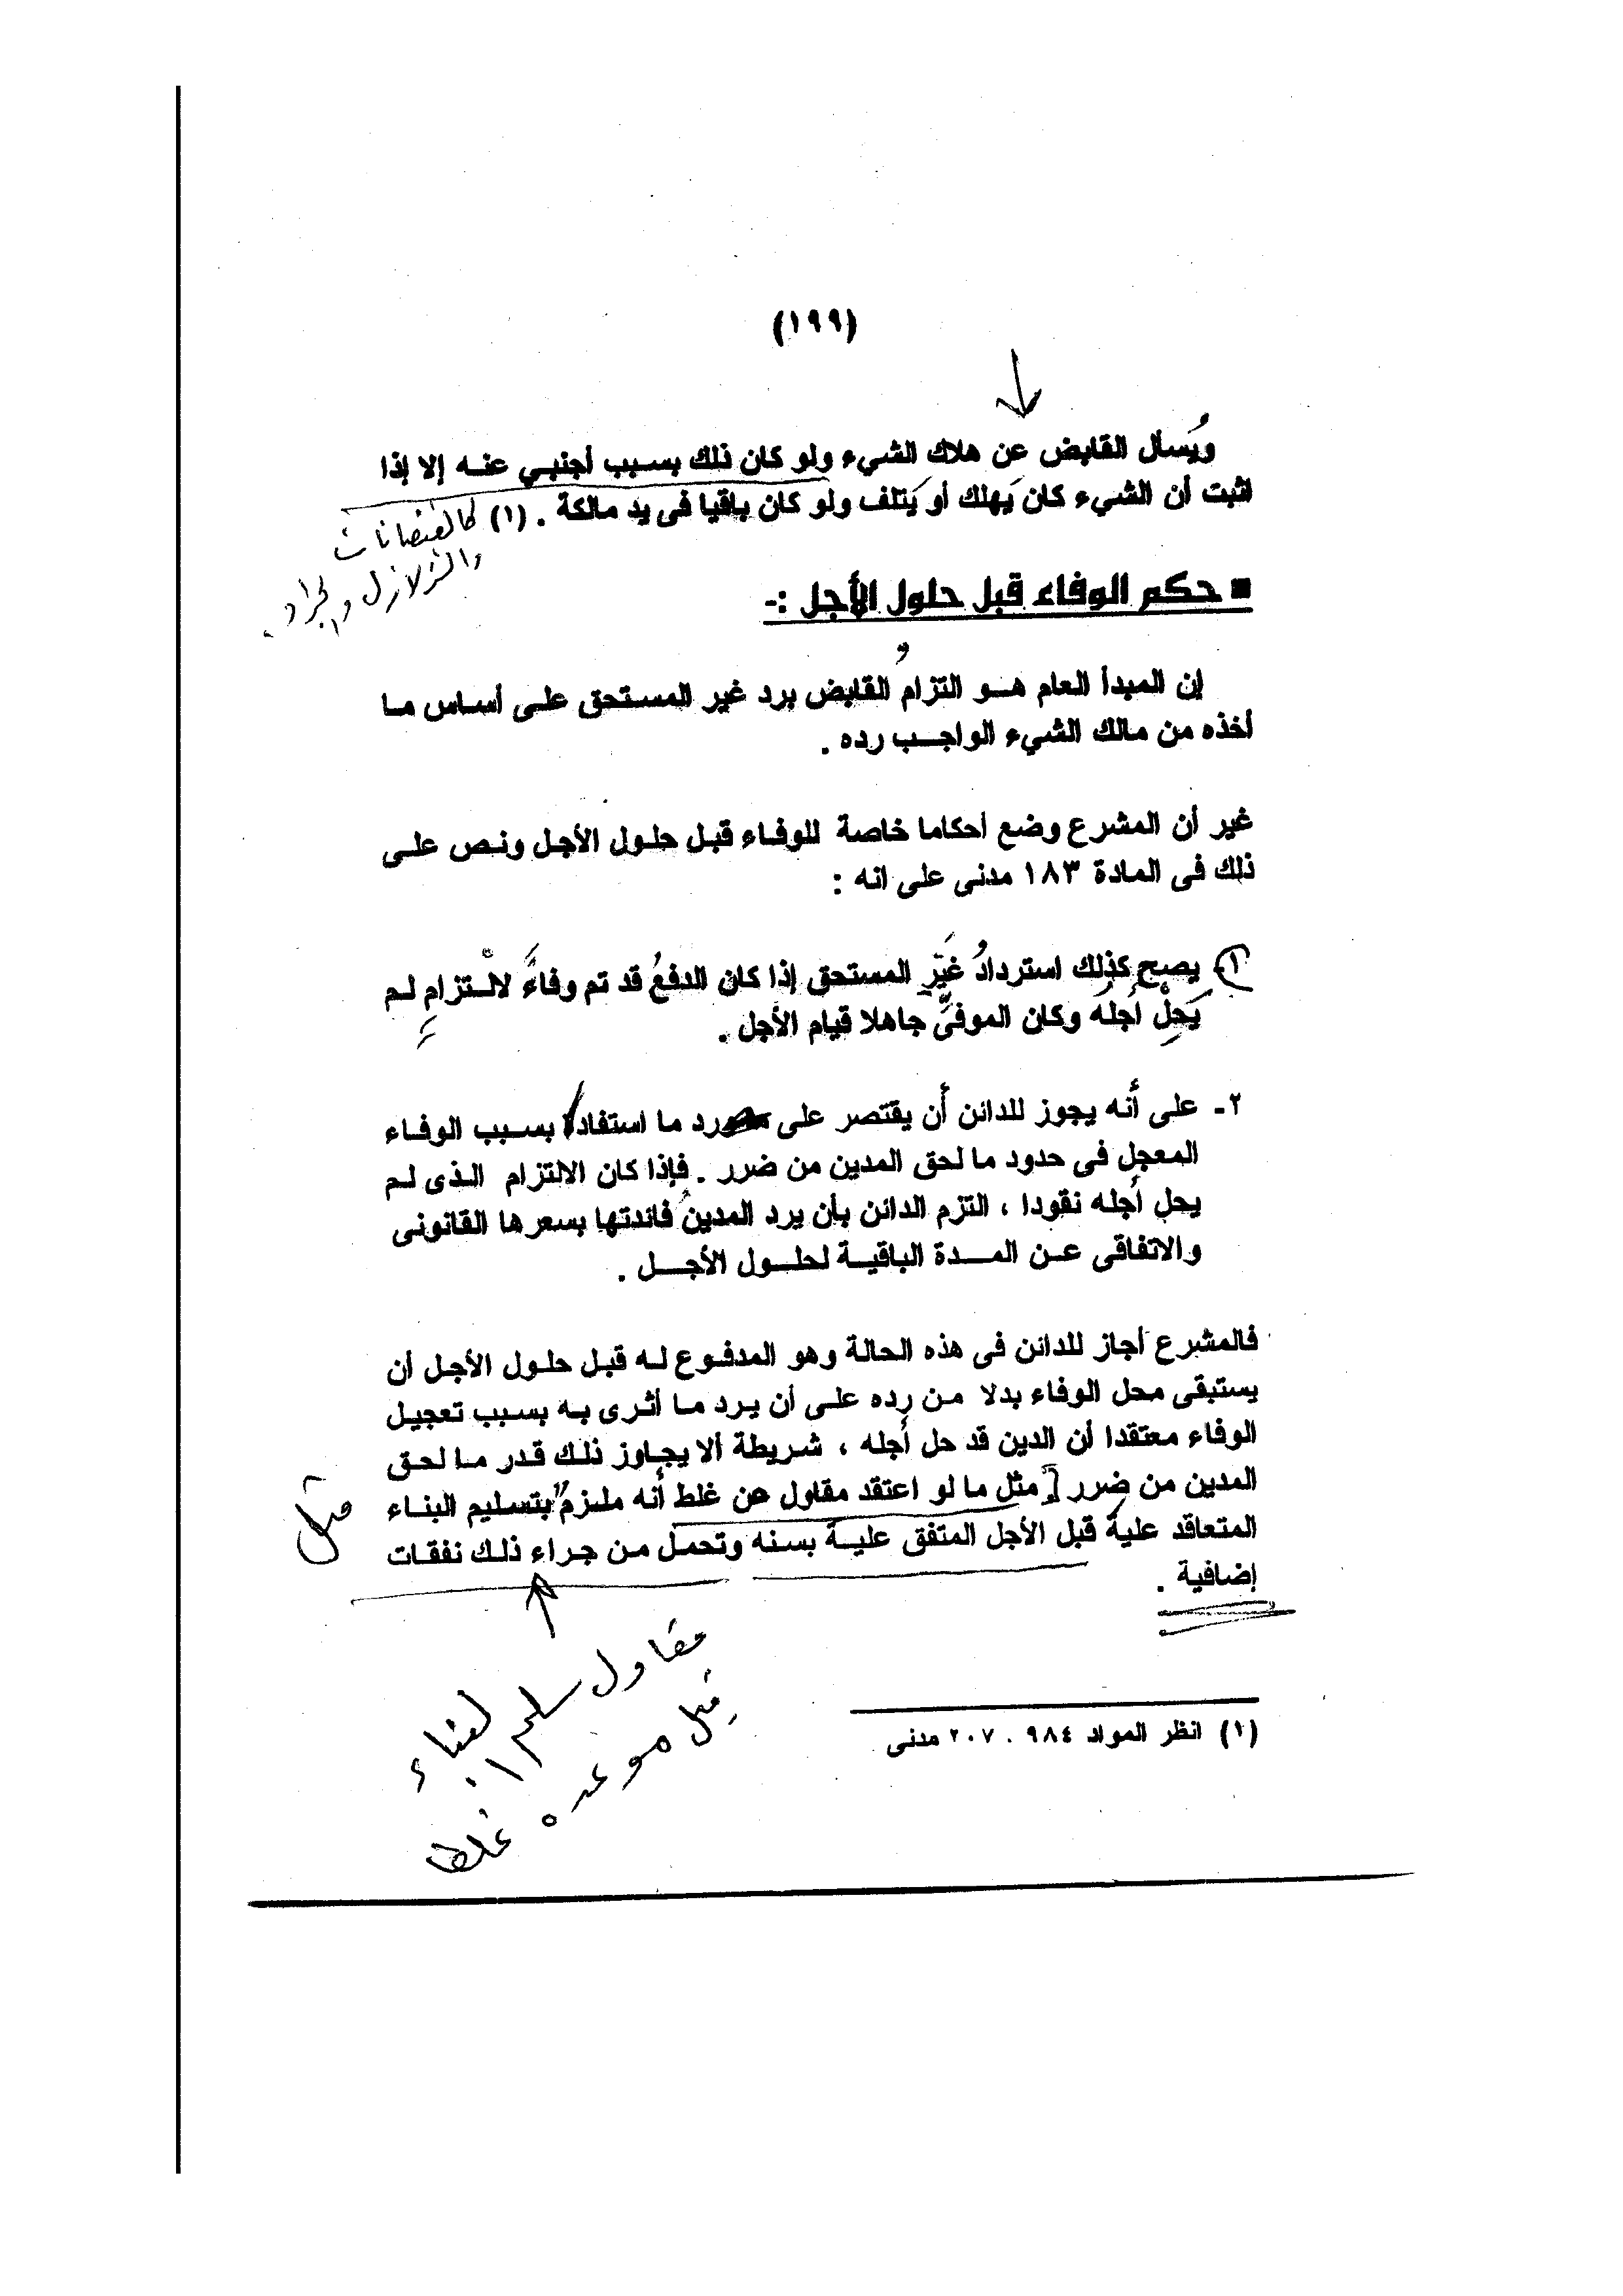 (١٩٩)
ويُسأل القابض عن هلاك الشيء ولو كان ذلك بسبب أجنبي عنه إلا إذا
اثبت أن الشيء كان يَهلك أو يَتلف ولو كان باقيا فى يد مالكة . (١)
كالفيضانات
والزلازل والجراد
■ حكم الوفاء قبل حلول الأجل :-
إن المبدأ العام هو التزام القابض برد غير المستحق على أساس ما
أخذه من مالك الشيء الواجب رده .
غير أن المشرع وضع أحكاما خاصة للوفاء قبل حلول الأجل ونص على
ذلك فى المادة ١٨٣ مدنى على انه :
١- يصح كذلك استردادُ غَيْر المستحق إذا كان الدفعُ قد تم وفاءً لالْتزامٍ لم
يَحِلْ أجلَه وكان الموفىَّ جاهلا قيام الأجل .
٢- على أنه يجوز للدائن أن يقتصر على رد ما استفاد بسبب الوفاء
المعجل فى حدود ما لحق المدين من ضرر . فإذا كان الالتزام الذى لم
يحل أجله نقودا ، التزم الدائن بأن يرد المدين فائدتها بسعرها القانونى
والاتفاقى عن المدة الباقية لحلول الأجل .
فالمشرع أجاز للدائن فى هذه الحالة وهو المدفوع له قبل حلول الأجل أن
يستبقى محل الوفاء بدلا من رده على أن يرد ما أثرى به بسبب تعجيل
الوفاء معتقدا أن الدين قد حل أجله ، شريطة ألا يجاوز ذلك قدر ما لحق
المدين من ضرر [ مثل ما لو اعتقد مقاول عن غلط أنه ملزم بتسليم البناء
مثل
المتعاقد علية قبل الأجل المتفق علية بسنه وتحمل من جراء ذلك نفقات
إضافية .
مقاول سلم البناء
قبل موعده غلط
(١) انظر المواد ٩٨٤ . ٢٠٧ مدنى